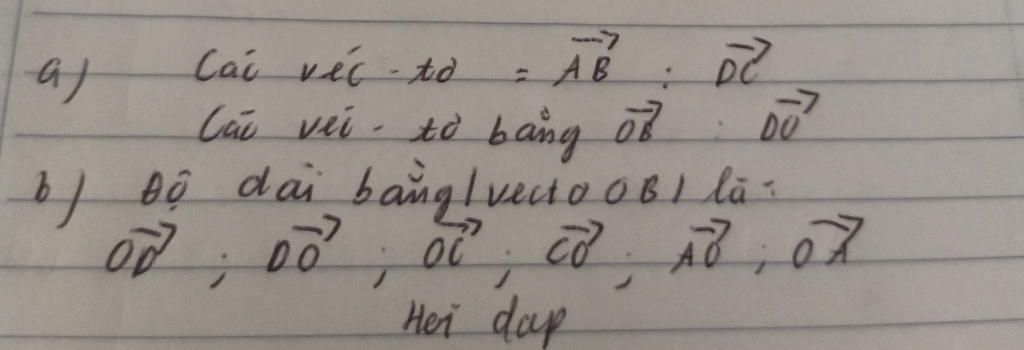 a) Các véc-tơ = \overrightarrow{AB} : \overrightarrow{DC}
Các véc-tơ bằng \overrightarrow{OB} : \overrightarrow{DO}
b) Độ dài bằng |vectơ OB| là:
\overrightarrow{OD} ; \overrightarrow{DO} ; \overrightarrow{OC} ; \overrightarrow{CO} ; \overrightarrow{AO} ; \overrightarrow{OA}
Hei dap